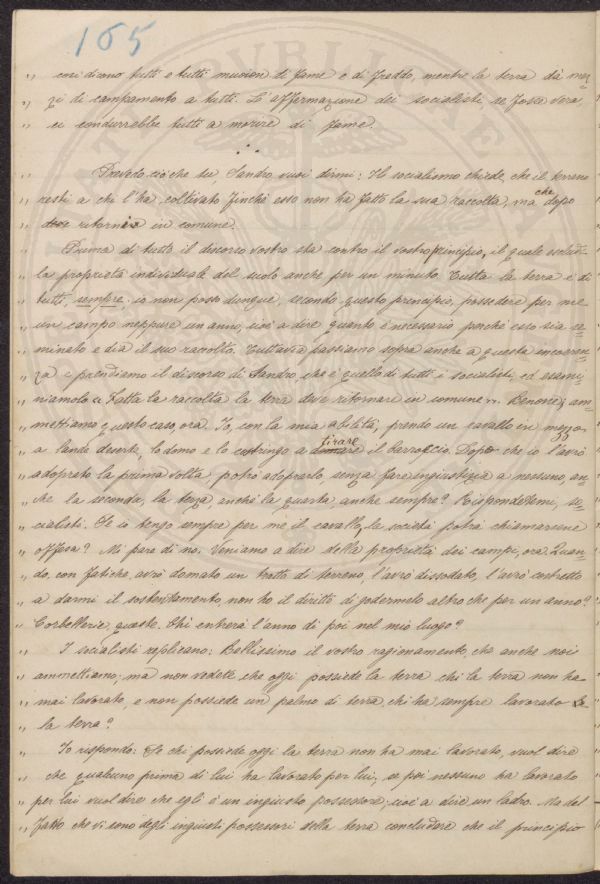 165
„ cosi diono tutti e tutti muoion di fame e di freddo, mentre la terra dà mez-
„ zi di campamento a tutti. L'affermazione dei socialisti, se fosse vera,
„ ci condurrebbe tutti a morire di fame.
„ Prevedo ciò che tu, Sandro vuoi dirmi: Il socialismo chiede, che il terreno
„ resti a chi l'ha coltivato finchè esso non ha fatto la sua raccolta, ma che dopo
„ ritorni in comune.
„ Prima di tutto il discorso vostro sta contro il vostro principio, il quale esclude
„ la proprietà individuale del suolo anche per un minuto. Tutta la terra è di
„ tutti, sempre; io non posso dunque, secondo questo principio, possedere per me
„ un campo neppure un anno, cioè a dire quanto è necessario perchè esso sia se-
„ minato e dia il suo raccolto. Tuttavia passiamo sopra anche a questa incoeren-
„ za e prendiamo il discorso di Sandro, che è quello di tutti i socialisti, ed esami-
„ niamolo: „ Fatta la raccolta la terra deve ritornare in comune „. Benone; am-
„ mettiamo questo caso, ora. Io, con la mia abilità, prendo un cavallo in mezzo
„ a lande deserte, lo domo e lo costringo a tirare il barroccio. Dopo che io l'avrò
„ adoprato la prima volta, potrò adoprarlo, senza fare ingiustizia a nessuno, an-
„ che la seconda, la terza, anche la quarta, anche sempre? Rispondetemi, so-
„ cialisti. Se io tengo sempre per me il cavallo, la società potrà chiamarsene
„ offesa? Mi pare di no. Veniamo a dire della proprietà dei campi, ora. Quan-
„ do, con fatiche, avrò domato un tratto di terreno, l'avrò dissodato, l'avrò costretto
„ a darmi il sostentamento, non ho il diritto di godermelo altro che per un anno?
„ Corbellerie, queste. Chi entrerà l'anno di poi nel mio luogo?
„ I socialisti replicano: Bellissimo il vostro ragionamento, che anche noi
„ ammettiamo; ma non vedete che oggi possiede la terra chi la terra non ha
„ mai lavorato, e non possiede un palmo di terra, chi ha sempre lavorato
„ la terra?
„ Io rispondo: Se chi possiede oggi la terra non ha mai lavorato, vuol dire
„ che qualcuno prima di lui ha lavorato per lui; se poi nessuno ha lavorato
„ per lui vuol dire che egli è un ingiusto possessore, cioè a dire un ladro. Ma dal
„ fatto che vi sono degli ingiusti possessori della terra concludere che il principio